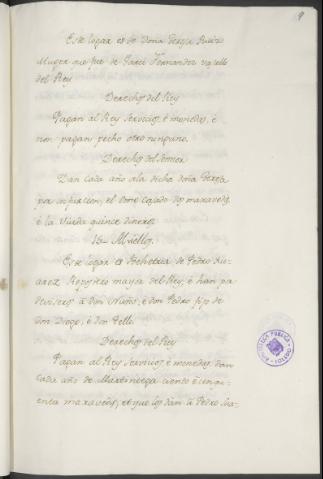 Este logar es de Doña Teresa
Muger que fue de Garci Fernandez vasallo
del Rey
Derechos del Rey
Pagan al Rey servicios, é monedas, é
non pagan pecho otro ninguno.
Derechos del Señor
Dan cada año á la dicha doña Teresa
por infurcion, el Ome casado dos maravedis,
é la Viuda quince dineros
Este logar es Behetria de Pedro
Repostero mayor del Rey, é han por
deviseros á Don Nuño, é don Pedro fijo de
don Diego, é Don Tello
Derechos del Rey
Pagan al Rey servicios, é monedas, dan
cada año de Martiniega ciento é cinqu-
enta maravedis, et que los dan á Pedro